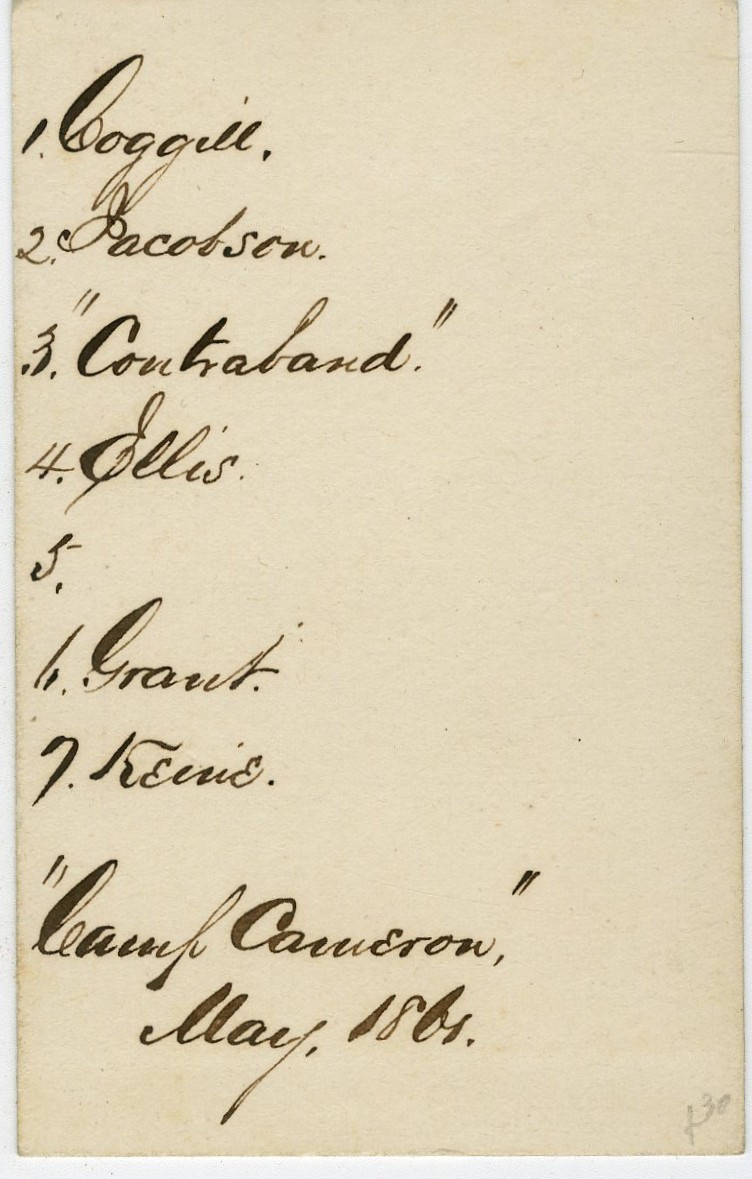 1. Coggill.
2. Jacobson.
3. "Contraband."
4. Ellis.
5.
6. Grant.
7.
"Camp Cameron,"
May, 1861.
30